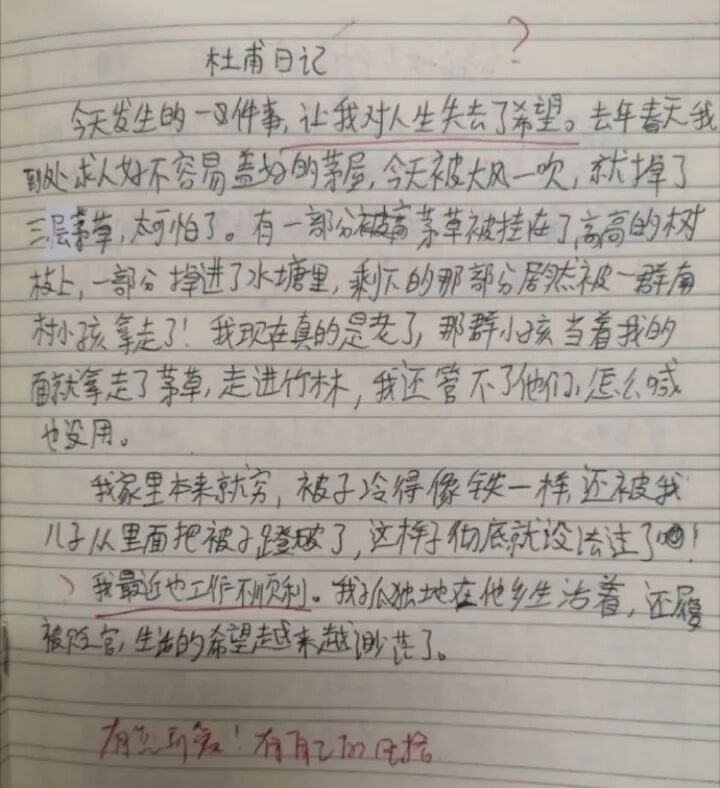 ?
杜甫日记
今天发生的一件事，让我对人生失去了希望。去年春天我
到处求人好不容易盖好的茅屋，今天被大风一吹，就掉了
三层茅草，太可怕了。有一部分被茅草被挂在了高高的树
枝上，一部分掉进了水塘里，剩下的那部分居然被一群南
村小孩拿走了！我现在真的是老了，那群小孩当着我的
面就拿走了茅草，走进竹林，我还管不了他们，怎么喊
也没用。
我家里本来就穷，被子冷得像铁一样，还被我
儿子从里面把被子蹬破了，这样子彻底就没法过了！
我最近也工作不顺利。我孤独地在他乡生活着，还屡
被贬官，生活的希望越来越渺茫了。
有自己的